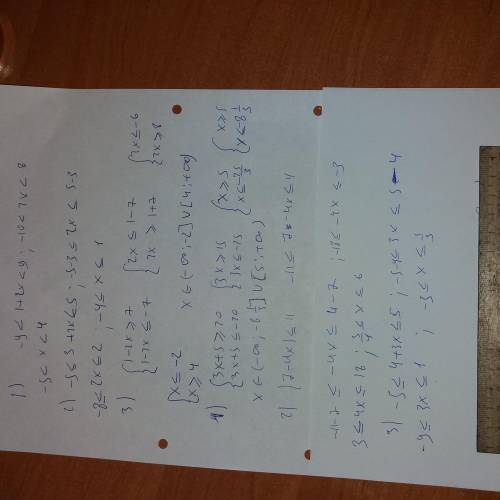 1) -9 ≤ 1+2x ≤ 9 ; -10 ≤ 2x ≤ 8
-5 ≤ x ≤ 4
2) -5 ≤ 3+2x ≤ 5 ; -5-3 ≤ 2x ≤ 5-3
-8 ≤ 2x ≤ 2 ; -4 ≤ x ≤ 1
3) { 1-2x ≥ 7 { 2x ≤ 1-7 { 2x ≤ -6
{ 1-2x ≤ -7 { 2x ≥ 1+7 { 2x ≥ 8
{ x ≤ -2 x ∈ (-∞; -2] ∪ [4; +∞)
{ x ≥ 4
{ 3x+5 ≥ 20 { 3x ≥ 15 { x ≥ 5 { x ≥ 5
{ 3x+5 ≤ -20 { 3x ≤ -25 { x ≤ -25/3 { x ≤ -8 1/3
x ∈ (-∞; -8 1/3] ∪ [5; +∞)
2) |7-4x| ≤ 11 -11 ≤ 7-4x ≤ 4
-11-7 ≤ -4x ≤ 4-7 ; -18 ≤ -4x ≤ -3
3 ≤ 4x ≤ 18 ; 3/4 ≤ x ≤ 6
3) -5 ≤ 4+3x ≤ 5 ; -5-4 ≤ 3x ≤ 5-4
-9 ≤ 3x ≤ 1 ; -3 ≤ x ≤ 1/3